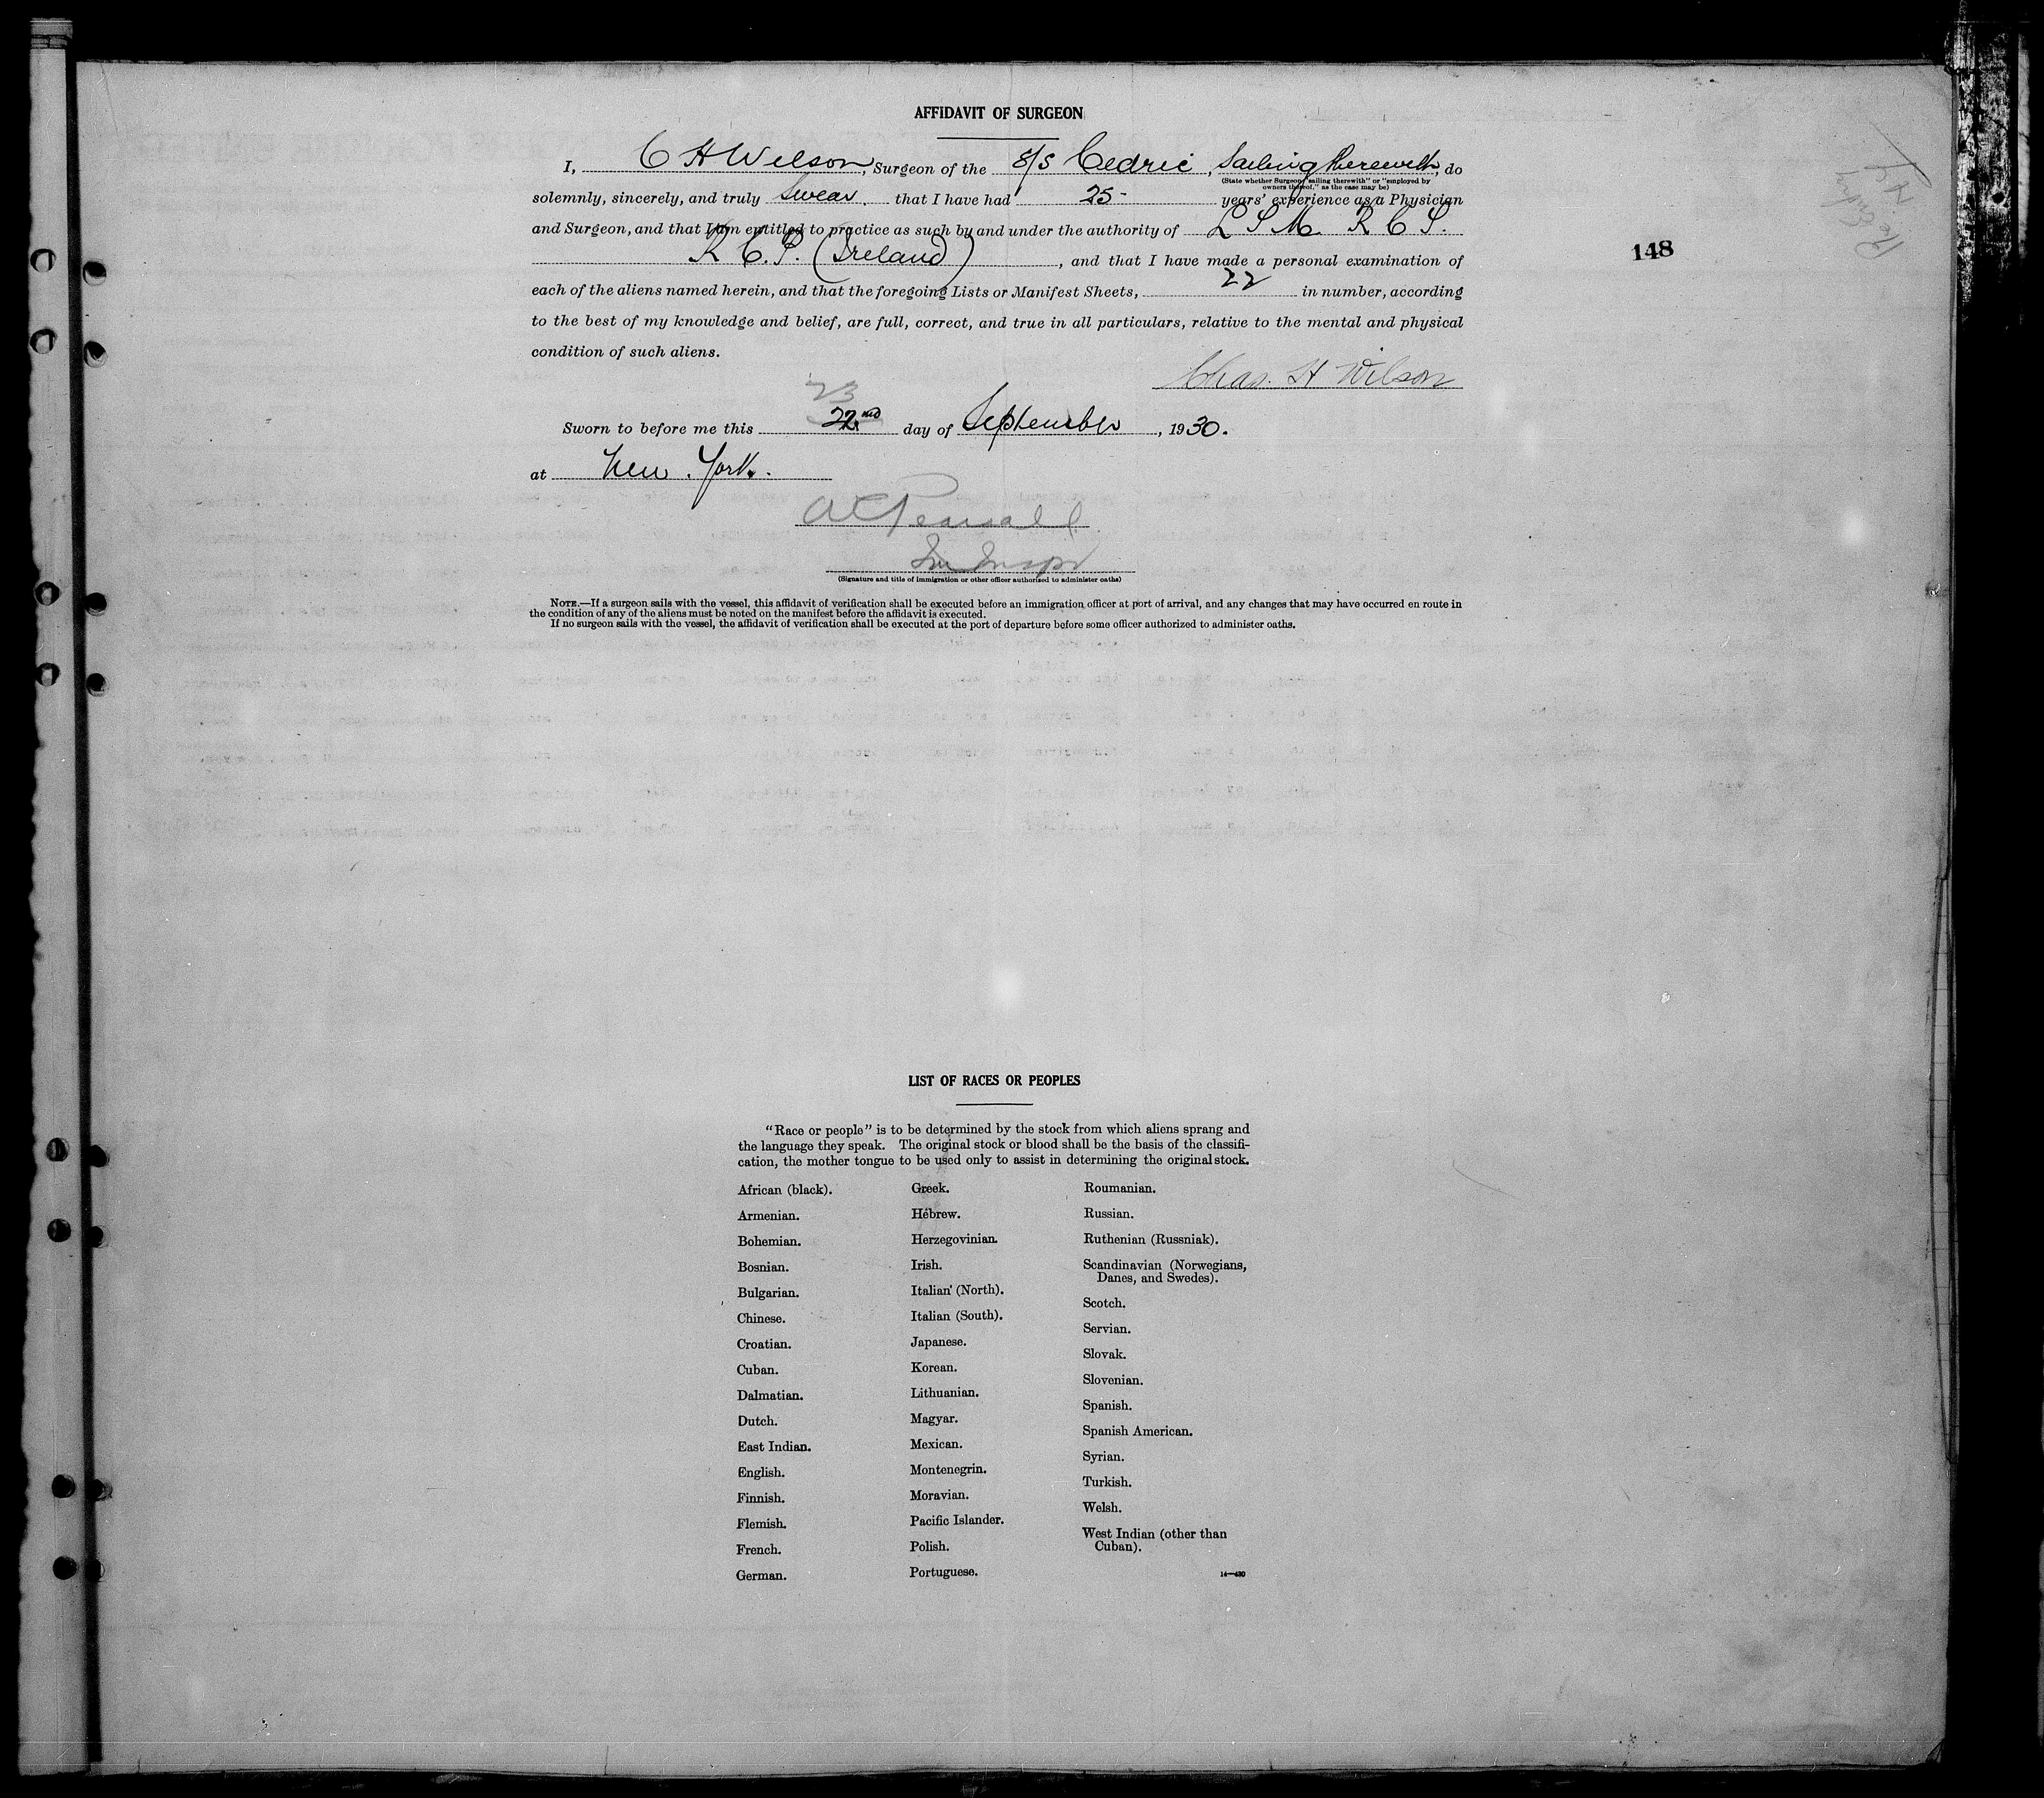 AFFIDAVIT OF SURGEON
I, C H Wilson, Surgeon of the S/S Cedric, Sailing therewith, do
(State whether Surgeon "sailing therewith" or "employed by
owners thereof," as the case may be)
solemnly, sincerely, and truly swear. that I have had 25- years' experience as a Physician
and Surgeon, and that I am entitled to practice as such by and under the authority of L S M R C S.
R C. P. (Ireland), and that I have made a personal examination of
148
each of the aliens named herein, and that the foregoing Lists or Manifest Sheets, 22 in number, according
to the best of my knowledge and belief, are full, correct, and true in all particulars, relative to the mental and physical
condition of such aliens.
Chas. H Wilson
23
Sworn to before me this 22nd day of September, 1930.
at New York.
Pearsall
(Signature and title of immigration or other officer authorized to administer oaths)
NOTE.—If a surgeon sails with the vessel, this affidavit of verification shall be executed before an immigration officer at port of arrival, and any changes that may have occurred en route in
the condition of any of the aliens must be noted on the manifest before the affidavit is executed.
If no surgeon sails with the vessel, the affidavit of verification shall be executed at the port of departure before some officer authorized to administer oaths.
LIST OF RACES OR PEOPLES
"Race or people" is to be determined by the stock from which aliens sprang and
the language they speak. The original stock or blood shall be the basis of the classifi-
cation, the mother tongue to be used only to assist in determining the original stock.
African (black).
Armenian.
Bohemian.
Bosnian.
Bulgarian.
Chinese.
Croatian.
Cuban.
Dalmatian.
Dutch.
East Indian.
English.
Finnish.
Flemish.
French.
German.
Greek.
Hebrew.
Herzegovinian.
Irish.
Italian (North).
Italian (South).
Japanese.
Korean.
Lithuanian.
Magyar.
Mexican.
Montenegrin.
Moravian.
Pacific Islander.
Polish.
Portuguese.
Roumanian.
Russian.
Ruthenian (Russniak).
Scandinavian (Norwegians,
Danes, and Swedes).
Scotch.
Servian.
Slovak.
Slovenian.
Spanish.
Spanish American.
Syrian.
Turkish.
Welsh.
West Indian (other than
Cuban).
14—430